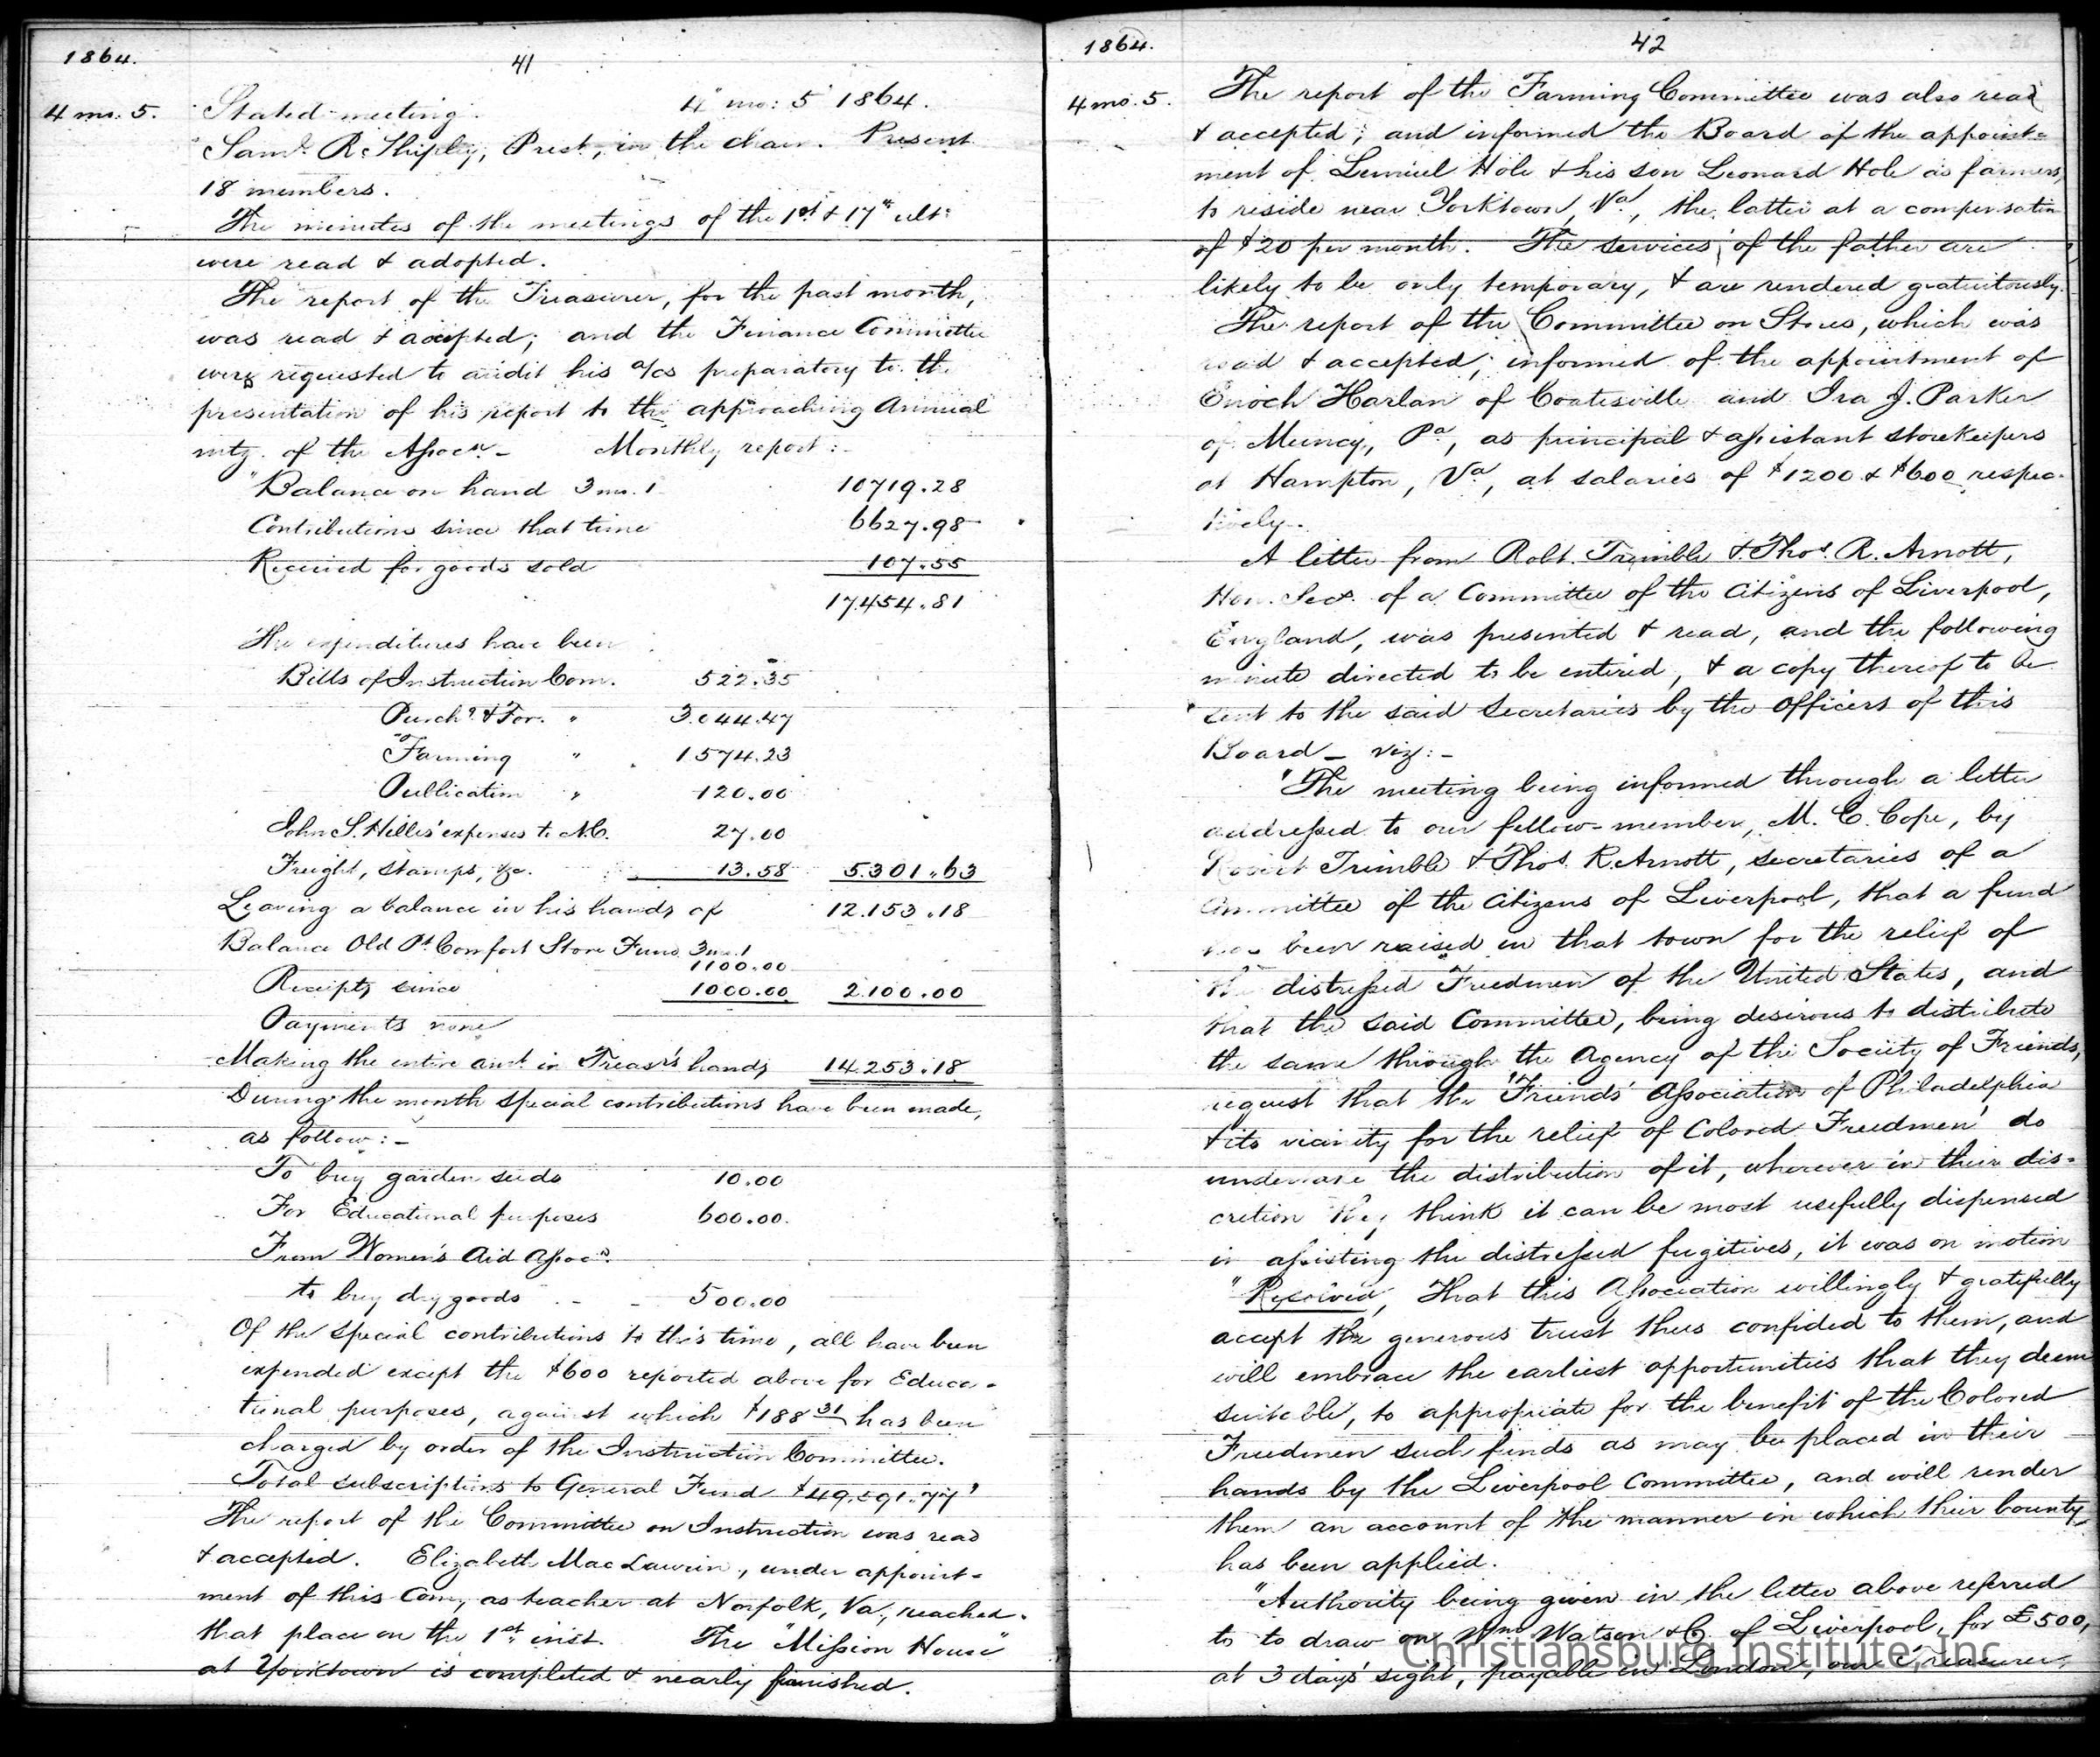 1864.
41
4 mo. 5.
Stated meeting. 4th mo: 5 1864.
Saml. R. Shipley, Prest., in the chair. Present
18 members.
The minutes of the meetings of the 1st & 17th ult:
were read & adopted.
The report of the Treasurer, for the past month,
was read & accepted; and the Finance Committee
were requested to audit his a/cs preparatory to the
presentation of his report to the approaching Annual
mtg. of the Assocn. - Monthly report: -
"Balance on hand 3 mo. 1 10719.28
Contributions since that time 6627.98
Received for goods sold 107.55
17.454.81
The expenditures have been
Bills of Instruction Com. 522.35
Purchg. & For. " 3.044.47
"Farming " 1574.23
Publication " 120.00
John S. Hilles' expenses to N.C. 27.00
Freight, stamps, &c. 13.58 5.301.63
Leaving a balance in his hands of 12.153.18
Balance Old Pt. Comfort Store Fund 3 mo. 1
1100.00
Receipts since 1000.00 2.100.00
Payments none
Making the entire amt. in Treasr's hands 14.253.18
During the month special contributions have been made,
as follow: -
To buy garden seeds 10.00
For Educational purposes 600.00.
From Women's Aid Assocn.
to buy dry goods - - 500.00
Of the special contributions to this time, all have been
expended except the $600 reported above for Educa-
tional purposes, against which $188 31 has been
charged by order of the Instruction Committee.
Total subscriptions to General Fund
The report of the Committee on Instruction was read
& accepted. Elizabeth MacLaurin, under appoint-
ment of this Com., as teacher at Norfolk, Va., reached
that place on the 1st inst. The "Mission House"
at Yorktown is completed & nearly furnished.
1864.
42
4 mo. 5.
The report of the Farming Committee was also read
& accepted; and informed the Board of the appoint-
ment of Lemuel Hole & his son Leonard Hole as farmers,
to reside near Yorktown, Va., the latter at a compensation
of $20 per month. The services of the father are
likely to be only temporary, & are rendered gratuitously.
The report of the Committee on Stores, which was
read & accepted; informed of the appointment of
Enoch Harlan of Coatesville and Ira J. Parker
of Muncy, Pa., as principal & assistant storekeepers
at Hampton, Va., at salaries of $1200 & $600 respec-
tively.
A letter from Robt. Trimble & Thos. R. Arnott,
Hon. Secs. of a Committee of the Citizens of Liverpool,
England, was presented & read, and the following
minute directed to be entered, & a copy thereof to be
sent to the said Secretaries by the Officers of this
Board - viz: -
"The meeting being informed through a letter
addressed to our fellow-member, M. C. Cope, by
Robert Trimble & Thos. R. Arnott, secretaries of a
Committee of the Citizens of Liverpool, that a fund
has been raised in that town for the relief of
the distressed Freedmen of the United States, and
that the said Committee, being desirous to distribute
the same through the Agency of the Society of Friends,
request that the 'Friends' Association of Philadelphia
& its vicinity for the relief of Colored Freedmen' do
undertake the distribution of it, wherever in their dis-
cretion they think it can be most usefully dispensed
in assisting the distressed fugitives, it was on motion
"Resolved, That this Association willingly & gratefully
accept the generous trust thus confided to them, and
will embrace the earliest opportunities that they deem
suitable, to appropriate for the benefit of the Colored
Freedmen such funds as may be placed in their
hands by the Liverpool Committee, and will render
them an account of the manner in which their bounty
has been applied.
"Authority being given in the letter above referred
to to draw on Wm. Watson & Co. of Liverpool, for £500,
at 3 days' sight, payable in London, our Treasurer,
Christiansburg Institute, Inc